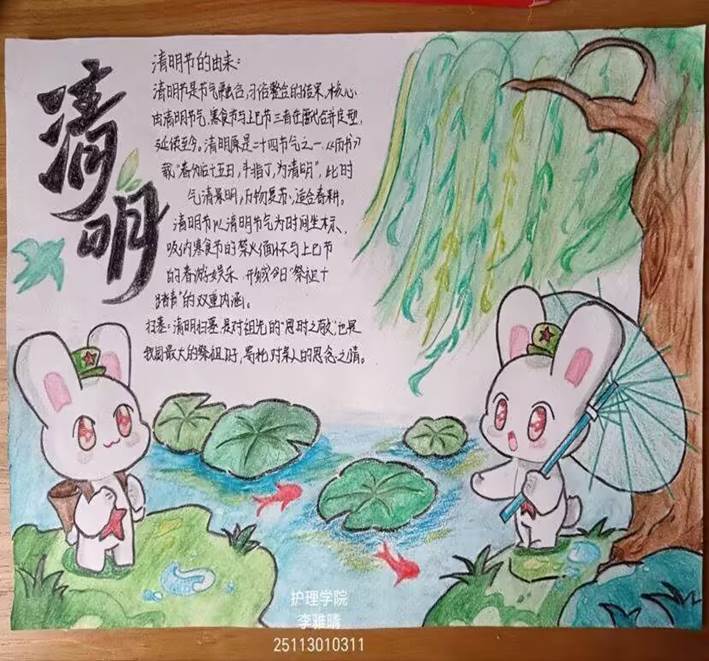 清明
清明节的由来:
清明节是节气融合,习俗整合的结果,核心
由清明节气,寒食节与上巳节三者在唐代合并定型,
延续至今。清明原是二十四节气之一,《淮南书》
载“春分后十五日,斗指丁,为清明”,此时
气清景明,万物复苏,适合春耕。
清明节以清明节气为时间坐标,
吸纳寒食节的禁火缅怀与上巳节
的春游娱乐,形成今日“祭祖+
踏青”的双重内涵。
扫墓:清明扫墓,是对祖先的“思时之敬”也是
我国最大的祭祖日,寄托对亲人的思念之情。
护理学院
李雅晴
25113010311